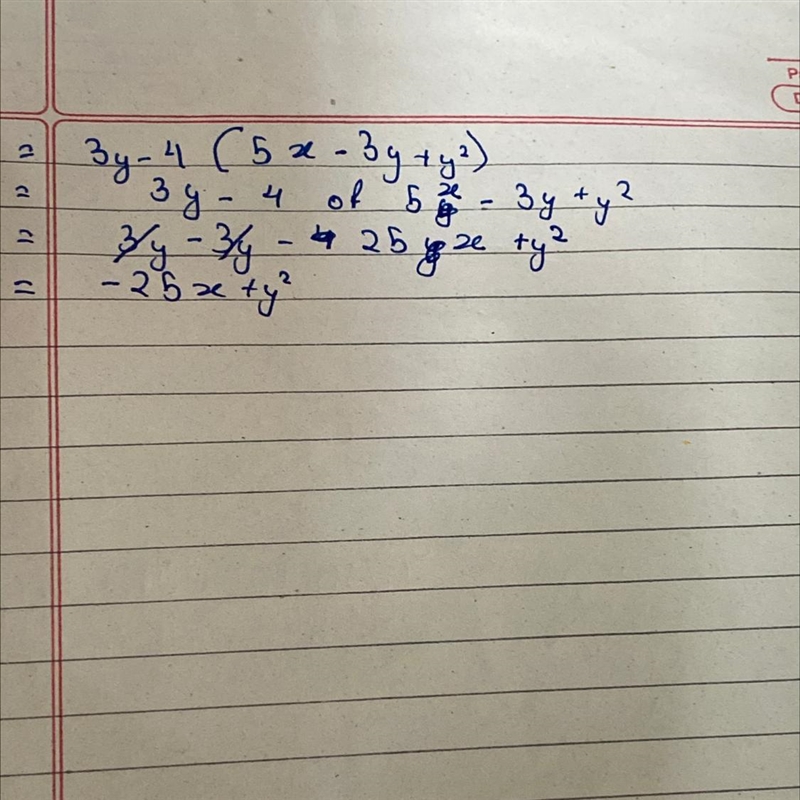 P
= 3y - 4 (5x - 3y + y²)
= 3y - 4 of 5x - 3y + y²
= 3y - 3y - 25x + y²
= - 25x + y²